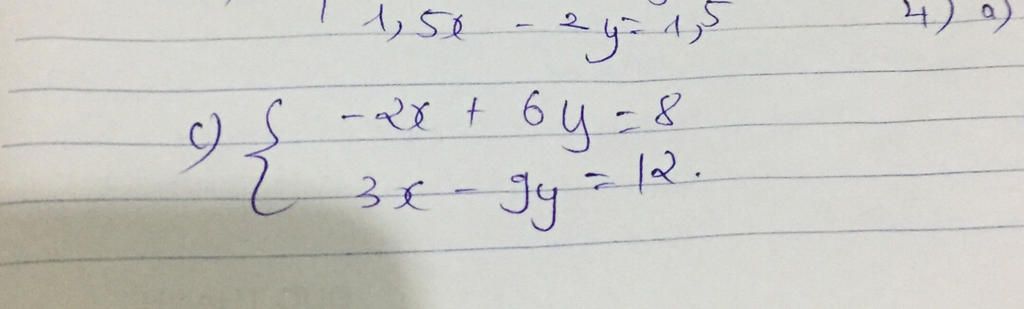 1,5x - 2y = 1,5
4) a)
c) { -2x + 6y = 8
3x - 9y = 12.